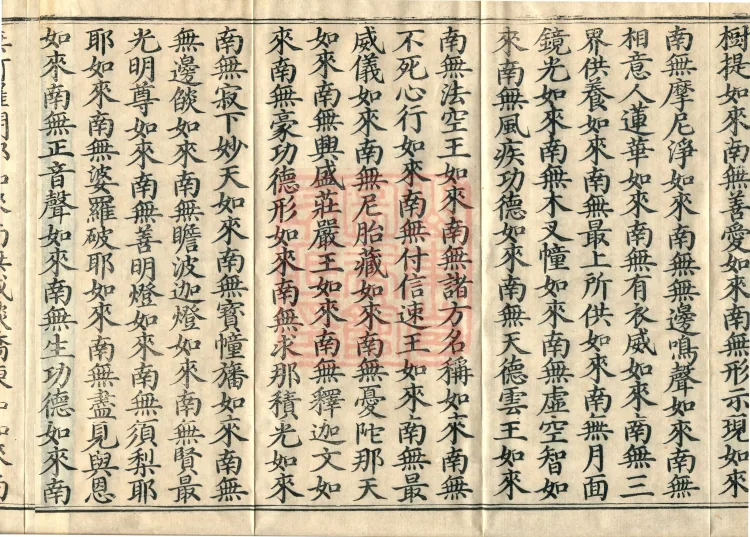 樹提如來南無善愛如來南無形示現如來
南無摩尼淨如來南無無邊鳴聲如來南無
相意人蓮華如來南無有衣威如來南無三
界供養如來南無最上所供如來南無月面
鏡光如來南無木叉幢如來南無虛空智如
來南無風疾功德如來南無天德雲王如來
南無法空王如來南無諸方名稱如來南無
不死心行如來南無付信速王如來南無最
威儀如來南無尼胎藏如來南無憂陀那天
如來南無興盛莊嚴王如來南無釋迦文如
來南無豪功德形如來南無求那積光如來
南無寂下妙天如來南無寶幢旛如來南無
無邊燄如來南無瞻波迦燈如來南無賢最
光明尊如來南無善明燈如來南無須梨耶
耶如來南無婆羅破耶如來南無盡見與恩
如來南無正音聲如來南無生功德如來南